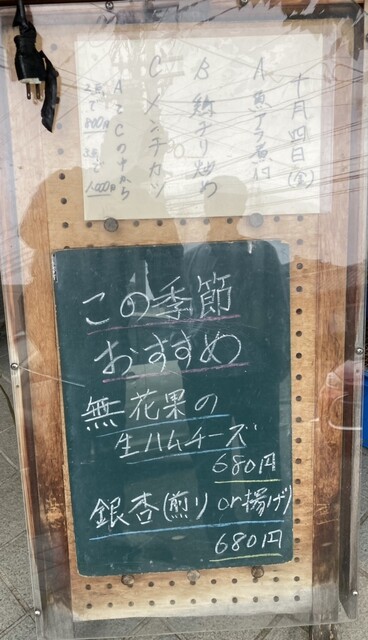 十月四日(金)
A 魚アラ煮付
B 鶏チリ炒め
C メンチカツ
AとCの中から
2点で800円 3点で1,000円
この季節
おすすめ
無花果の
生ハムチーズ
680円
銀杏(煎り or 揚げ)
680円